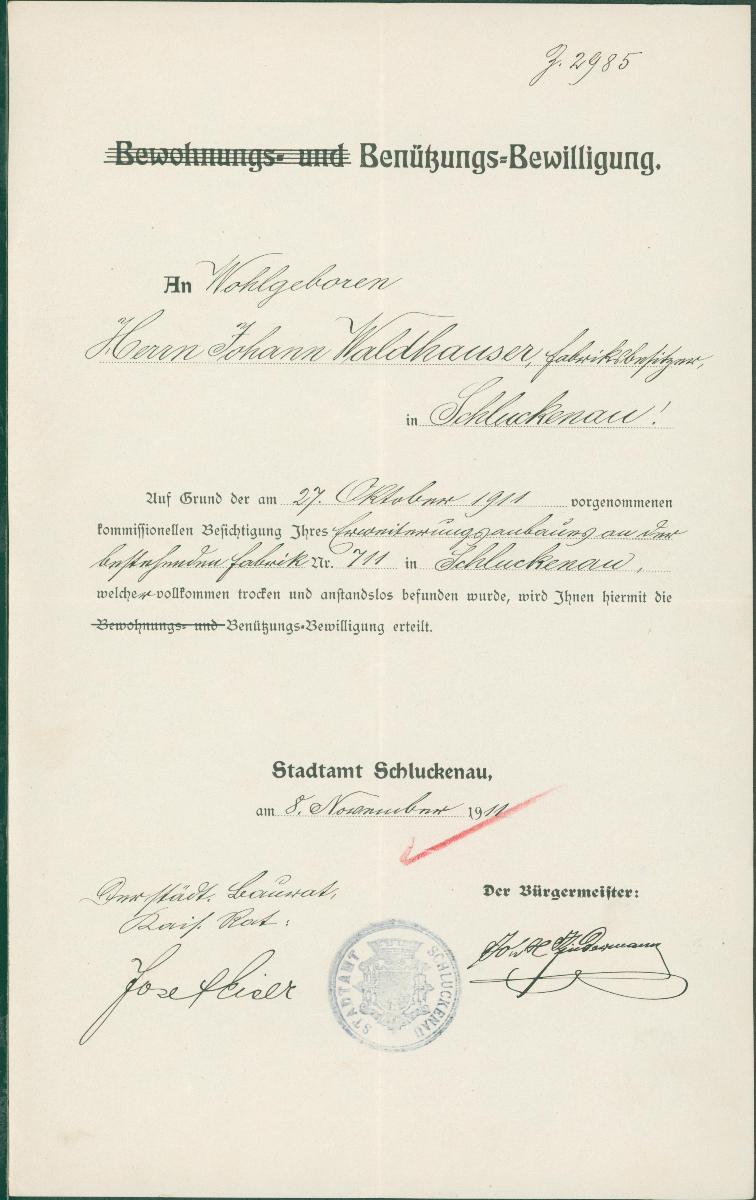 Z. 2985
Bewohnungs- und Benützungs-Bewilligung.
An Wohlgeboren
Herrn Johann Waldhauser, Fabriksbesitzer,
in Schluckenau!
Auf Grund der am 27. Oktober 1911 vorgenommenen
kommissionellen Besichtigung Ihres Erweiterungsanbaues an der
bestehenden Fabrik Nr. 711 in Schluckenau,
welcher vollkommen trocken und anstandslos befunden wurde, wird Ihnen hiermit die
Bewohnungs- und Benützungs-Bewilligung erteilt.
Stadtamt Schluckenau,
am 8. November 1911
Der städt. Baurat,
Kais. Rat:
Josef
Der Bürgermeister:
STADTAMT SCHLUCKENAU